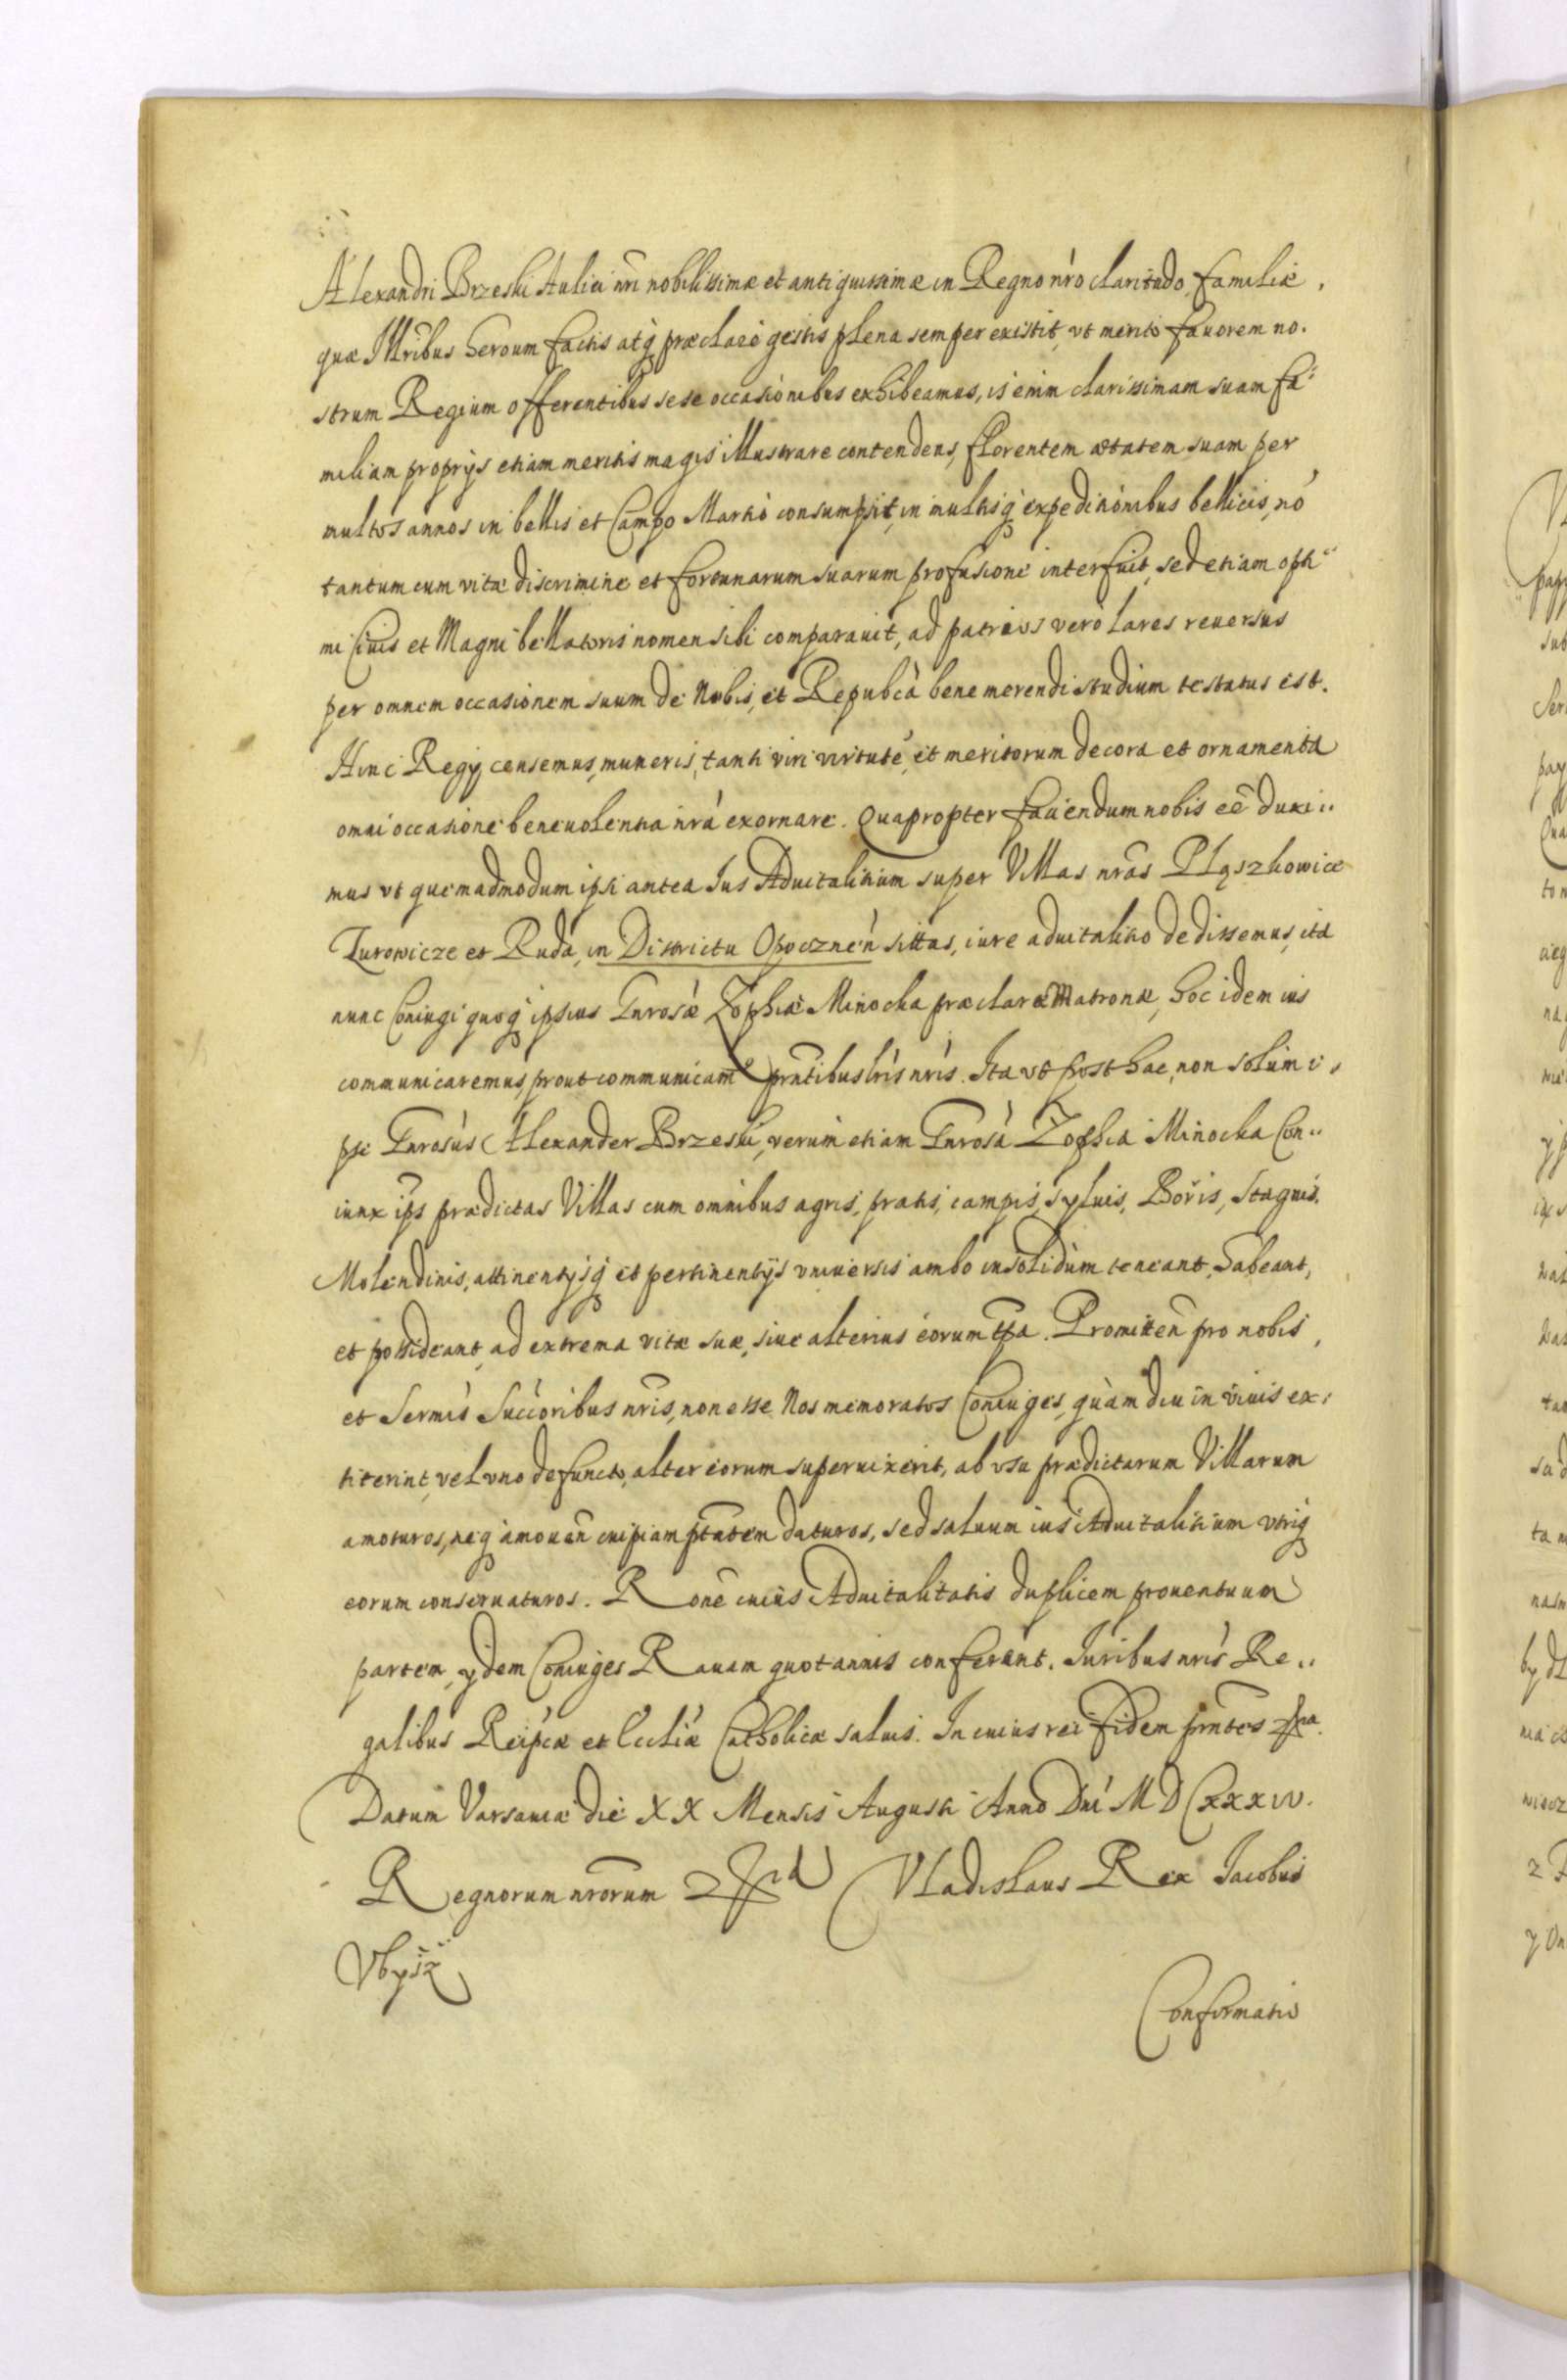 Alexandri Brzeski Aulici nri nobilissimæ et antiquissimæ in Regno nro claritudo familiæ,
quæ Illribus heroum factis atq præclarè gestis plena semper existit, vt meritò fauorem no.
strum Regium offerentibus sese occasionibus exhibeamus, is enim clarissimam suam fa
miliam proprijs etiam meritis magis illustrare contendens, florentem ætatem suam per
multos annos in bellis et Campo Martio consumpsit, in multisq expeditionibus bellicis, nō
tantum cum vitæ discrimine et fortunarum suarum profusione interfuit, sed etiam opti
mi Ciuis et Magni bellatoris nomen sibi comparauit, ad patrios verò lares reuersus
per omnem occasionem suum de Nobis, et Repubcà bene merendi studium testatus est.
Hinc Regij censemus, muneris, tanti viri virtutē, et meritorum decora et ornamenta
omni occasione beneuolentia nrà exornare. Quapropter fauendum nobis eē duxi..
mus vt quemadmodum ipsi antea Ius Aduitalitium super Villas nras Pląszkowice
Zurowicze et Ruda, in Districtu Opocznen sittas, iure aduitalitio dedissemus, ita
nunc Coniugi quoq ipsius Gnrosæ Zophiæ Minocka præclaræ Matronæ, hoc idem ius
communicaremus, prout communicam prntibus lris nris. Ita vt post hac, non solùm i,
pse Gnrosus Alexander Brzeski, verum etiam Gnrosa Zophia Minocka Con..
iunx ips prædictas Villas cum omnibus agris, pratis, campis, syluis, Boris, Stagnis,
Molendinis, attinentijsq et pertinentijs vniuersis ambo insolidùm teneant, habeant,
et possideant, ad extrema vitæ suæ, siue alterius eorum tpa. Promitten pro nobis,
et Sermis Succoribus nris, non esse Nos memoratos Coniuges, quàm diu in viuis ex,
titerint, vel vno defuncto, alter eorum superuixerit, ab vsu prædictarum Villarum
amoturos, neq amouen cuipiam ptatem daturos, sed saluum ius Aduitalitium vtriq
eorum conseruaturos. Rone cuius Aduitalitatis duplicem prouentuum
partem, ijdem Coniuges Rauam quotannis conferent. Iuribus nris Re..
galibus Reipcæ et Eccliæ Catholicæ saluis. In cuius rei fidem prntes
Datum Varsauiæ die XX Mensis Augusti Anno Dni MDCXXXIV.
Regnorum nrorum Vladislaus Rex Iacobus
Vbysz
Confirmatio